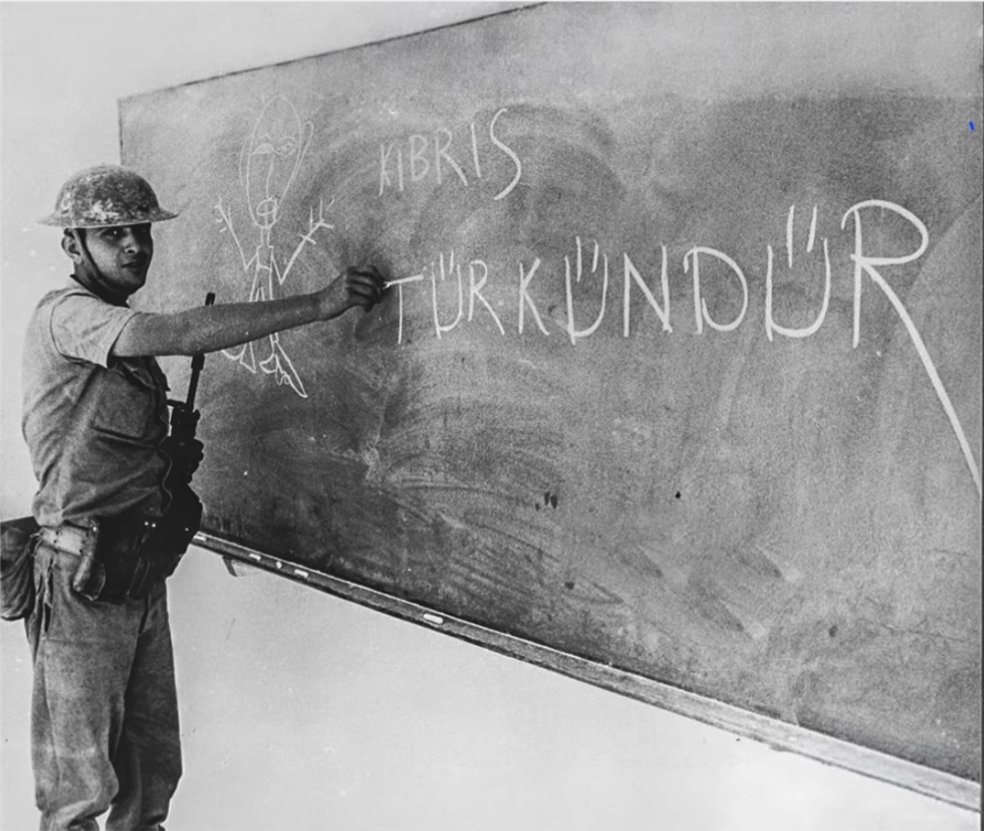 KIBRIS
TÜRKÜNDÜR